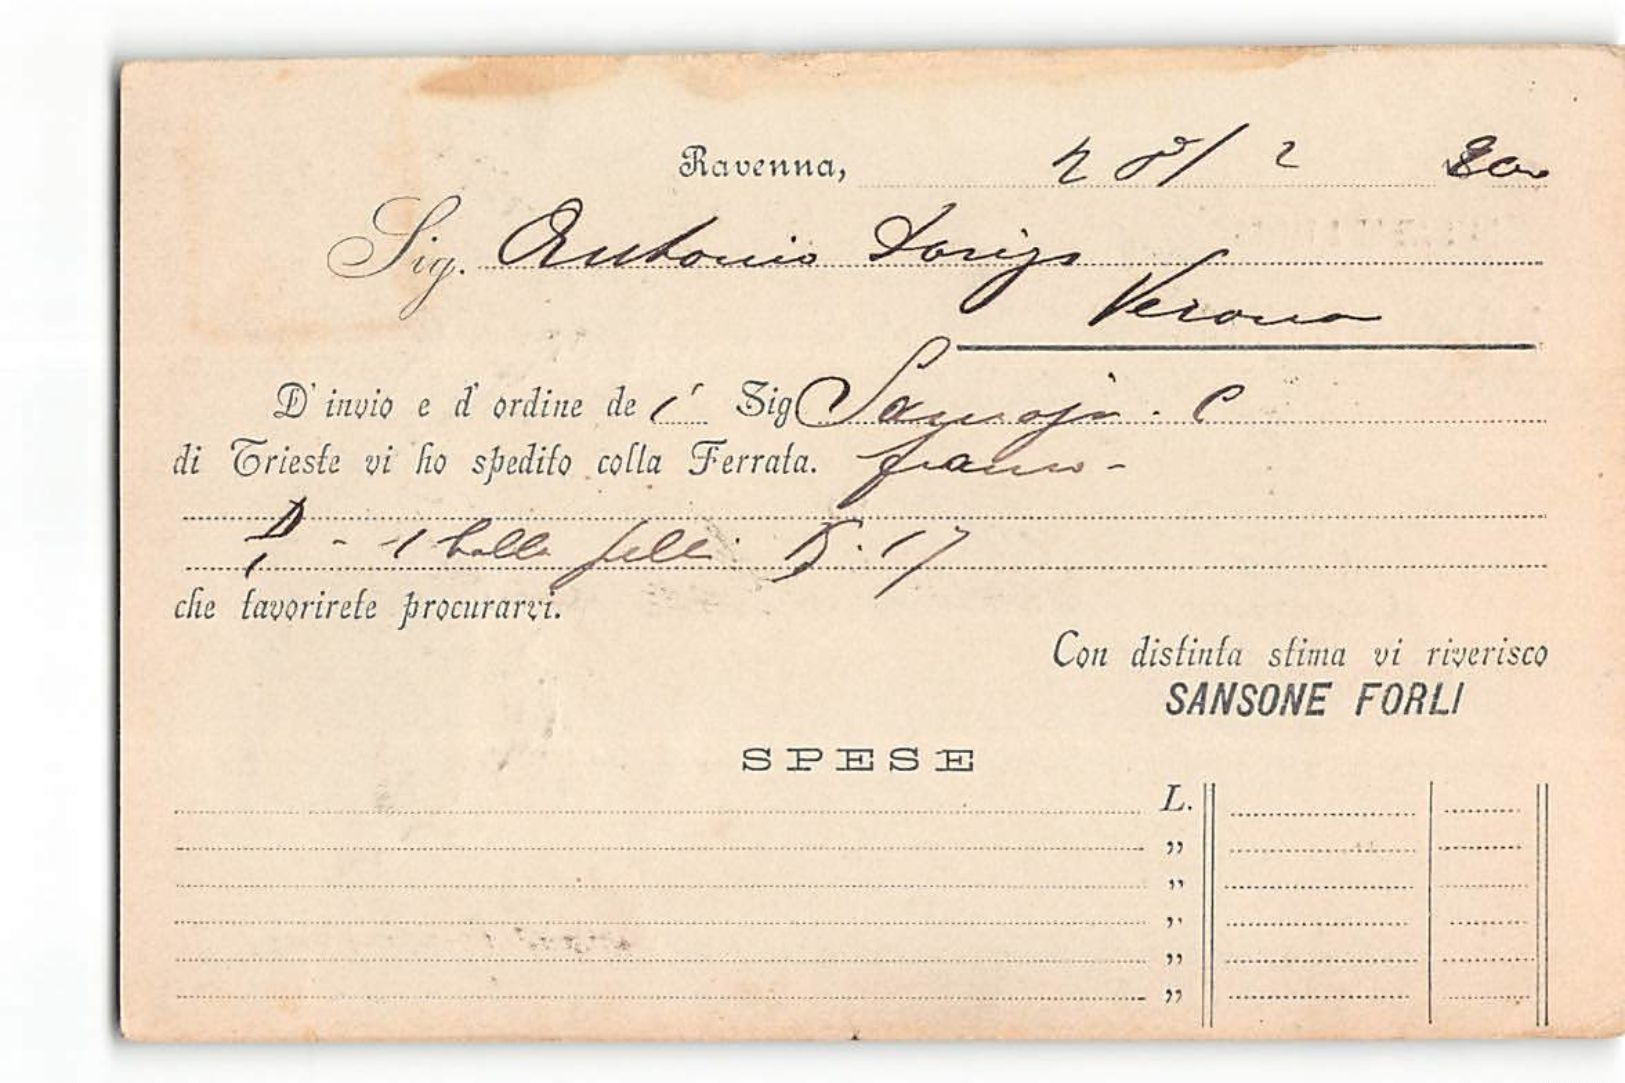 Ravenna, 28/2
Sig. Antonio
Verona
D'invio e d'ordine de i Sig
di Trieste vi ho spedito colla Ferrata. franco -
- 1 balla pelli 17
che favorirete procurarvi.
Con distinta stima vi riverisco
SANSONE FORLI
SPESE
L.
"
"
"
"
"